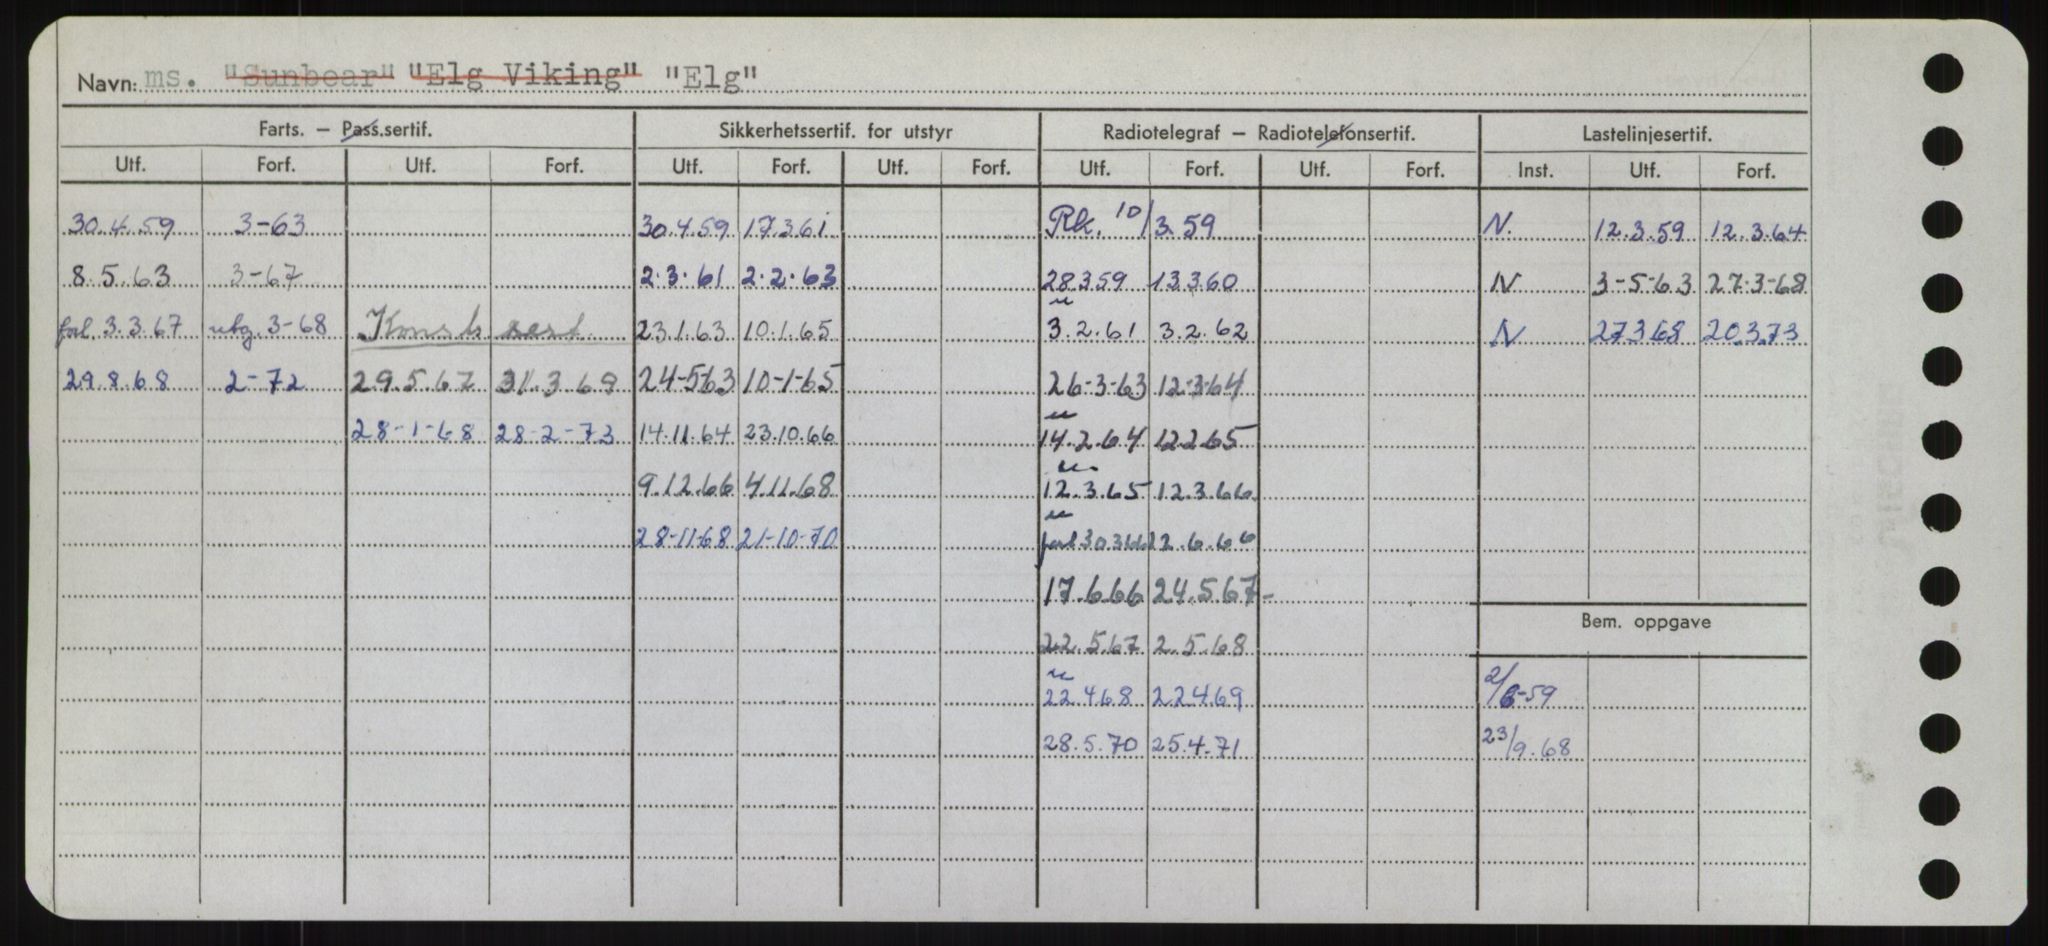 Navn: ms. "Sunbear" "Elg Viking" "Elg"
Farts. — Pass.sertif. Sikkerhetssertif. for utstyr Radiotelegraf — Radiotelefonsertif. Lastelinjesertif.
Utf. Forf. Utf. Forf. Utf. Forf. Utf. Forf. Utf. Forf. Utf. Forf. Inst. Utf. Forf.
30.4.59 3-63 30.4.59 17.3.61 Rk. 10/3.59 N. 12.3.59 12.3.64
8.5.63 3-67 2.3.61 2.2.63 28359 13360 N 3-5-63 27-3-68
forl. 3.3.67 utg. 3-68 Konst. sert. 23.1.63 10.1.65 3.2.61 3.2.62 N 27368 20.3.73
29.8.68 2-72 29.5.67 31.3.69 24-563 10-1-65 26-3-63 12-3-64
28-1-68 28-2-73 14.11.64 23.10.66 14.2.64 12265
9.12.66 4.11.68 12.3.65 12.3.66
28-11-68 21-10-70 forl 30366 22.6.66
17.6.66 24.567-
22.5.67 2.5.68
22468 22469 2/6-59
28.5.70 25.4.71 23/9.68
Bem. oppgave